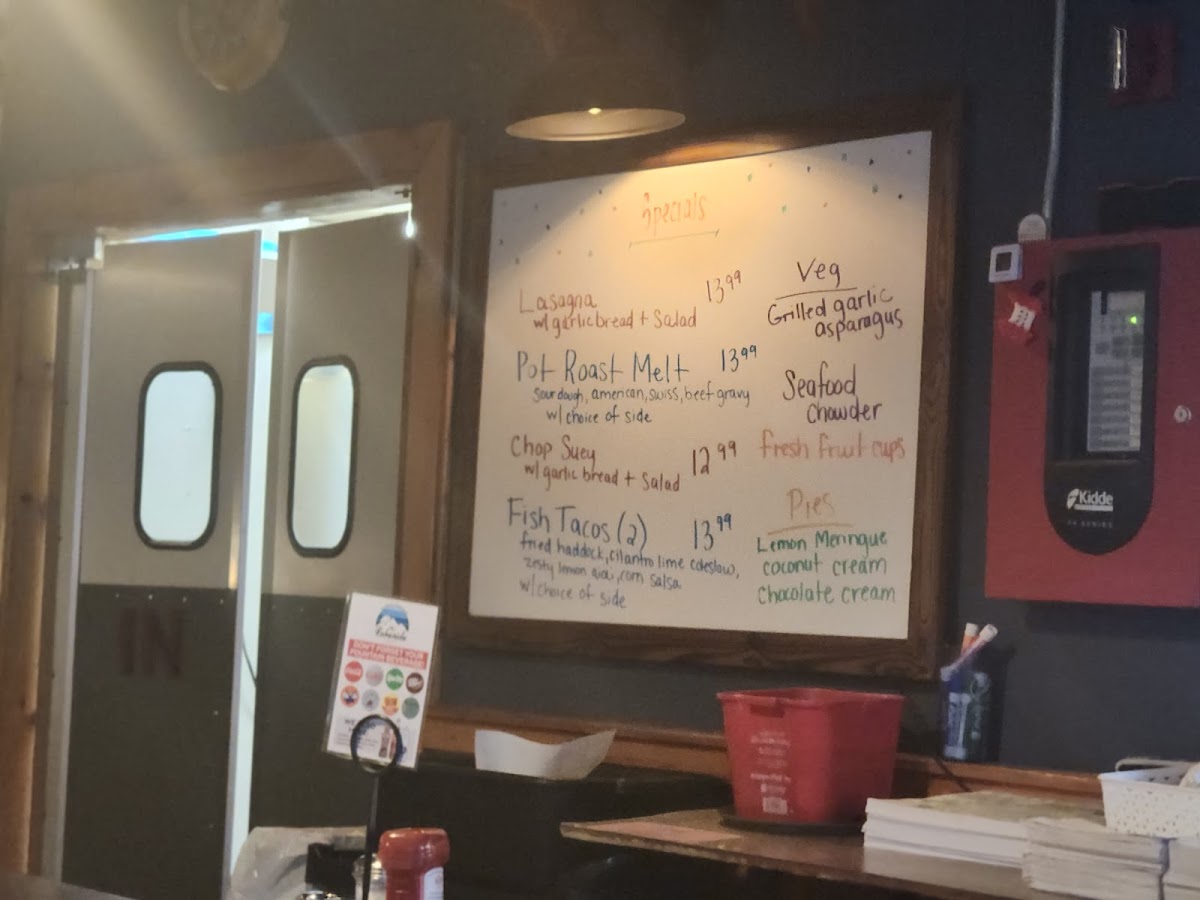 Specials
Lasagna 13.99
w/ garlic bread + Salad
Pot Roast Melt 13.99
sourdough, american, swiss, beef gravy
w/ choice of side
Chop Suey 12.99
w/ garlic bread + Salad
Fish Tacos (2) 13.99
fried haddock, cilantro lime coleslaw,
zesty lemon aioi, corn salsa
w/ choice of side
Veg
Grilled garlic
asparagus
Seafood
chowder
fresh fruit cups
Pies
Lemon Meringue
coconut cream
chocolate cream
IN
DON'T FORGET YOUR
FOUNTAIN BEVERAGE!
Kidde